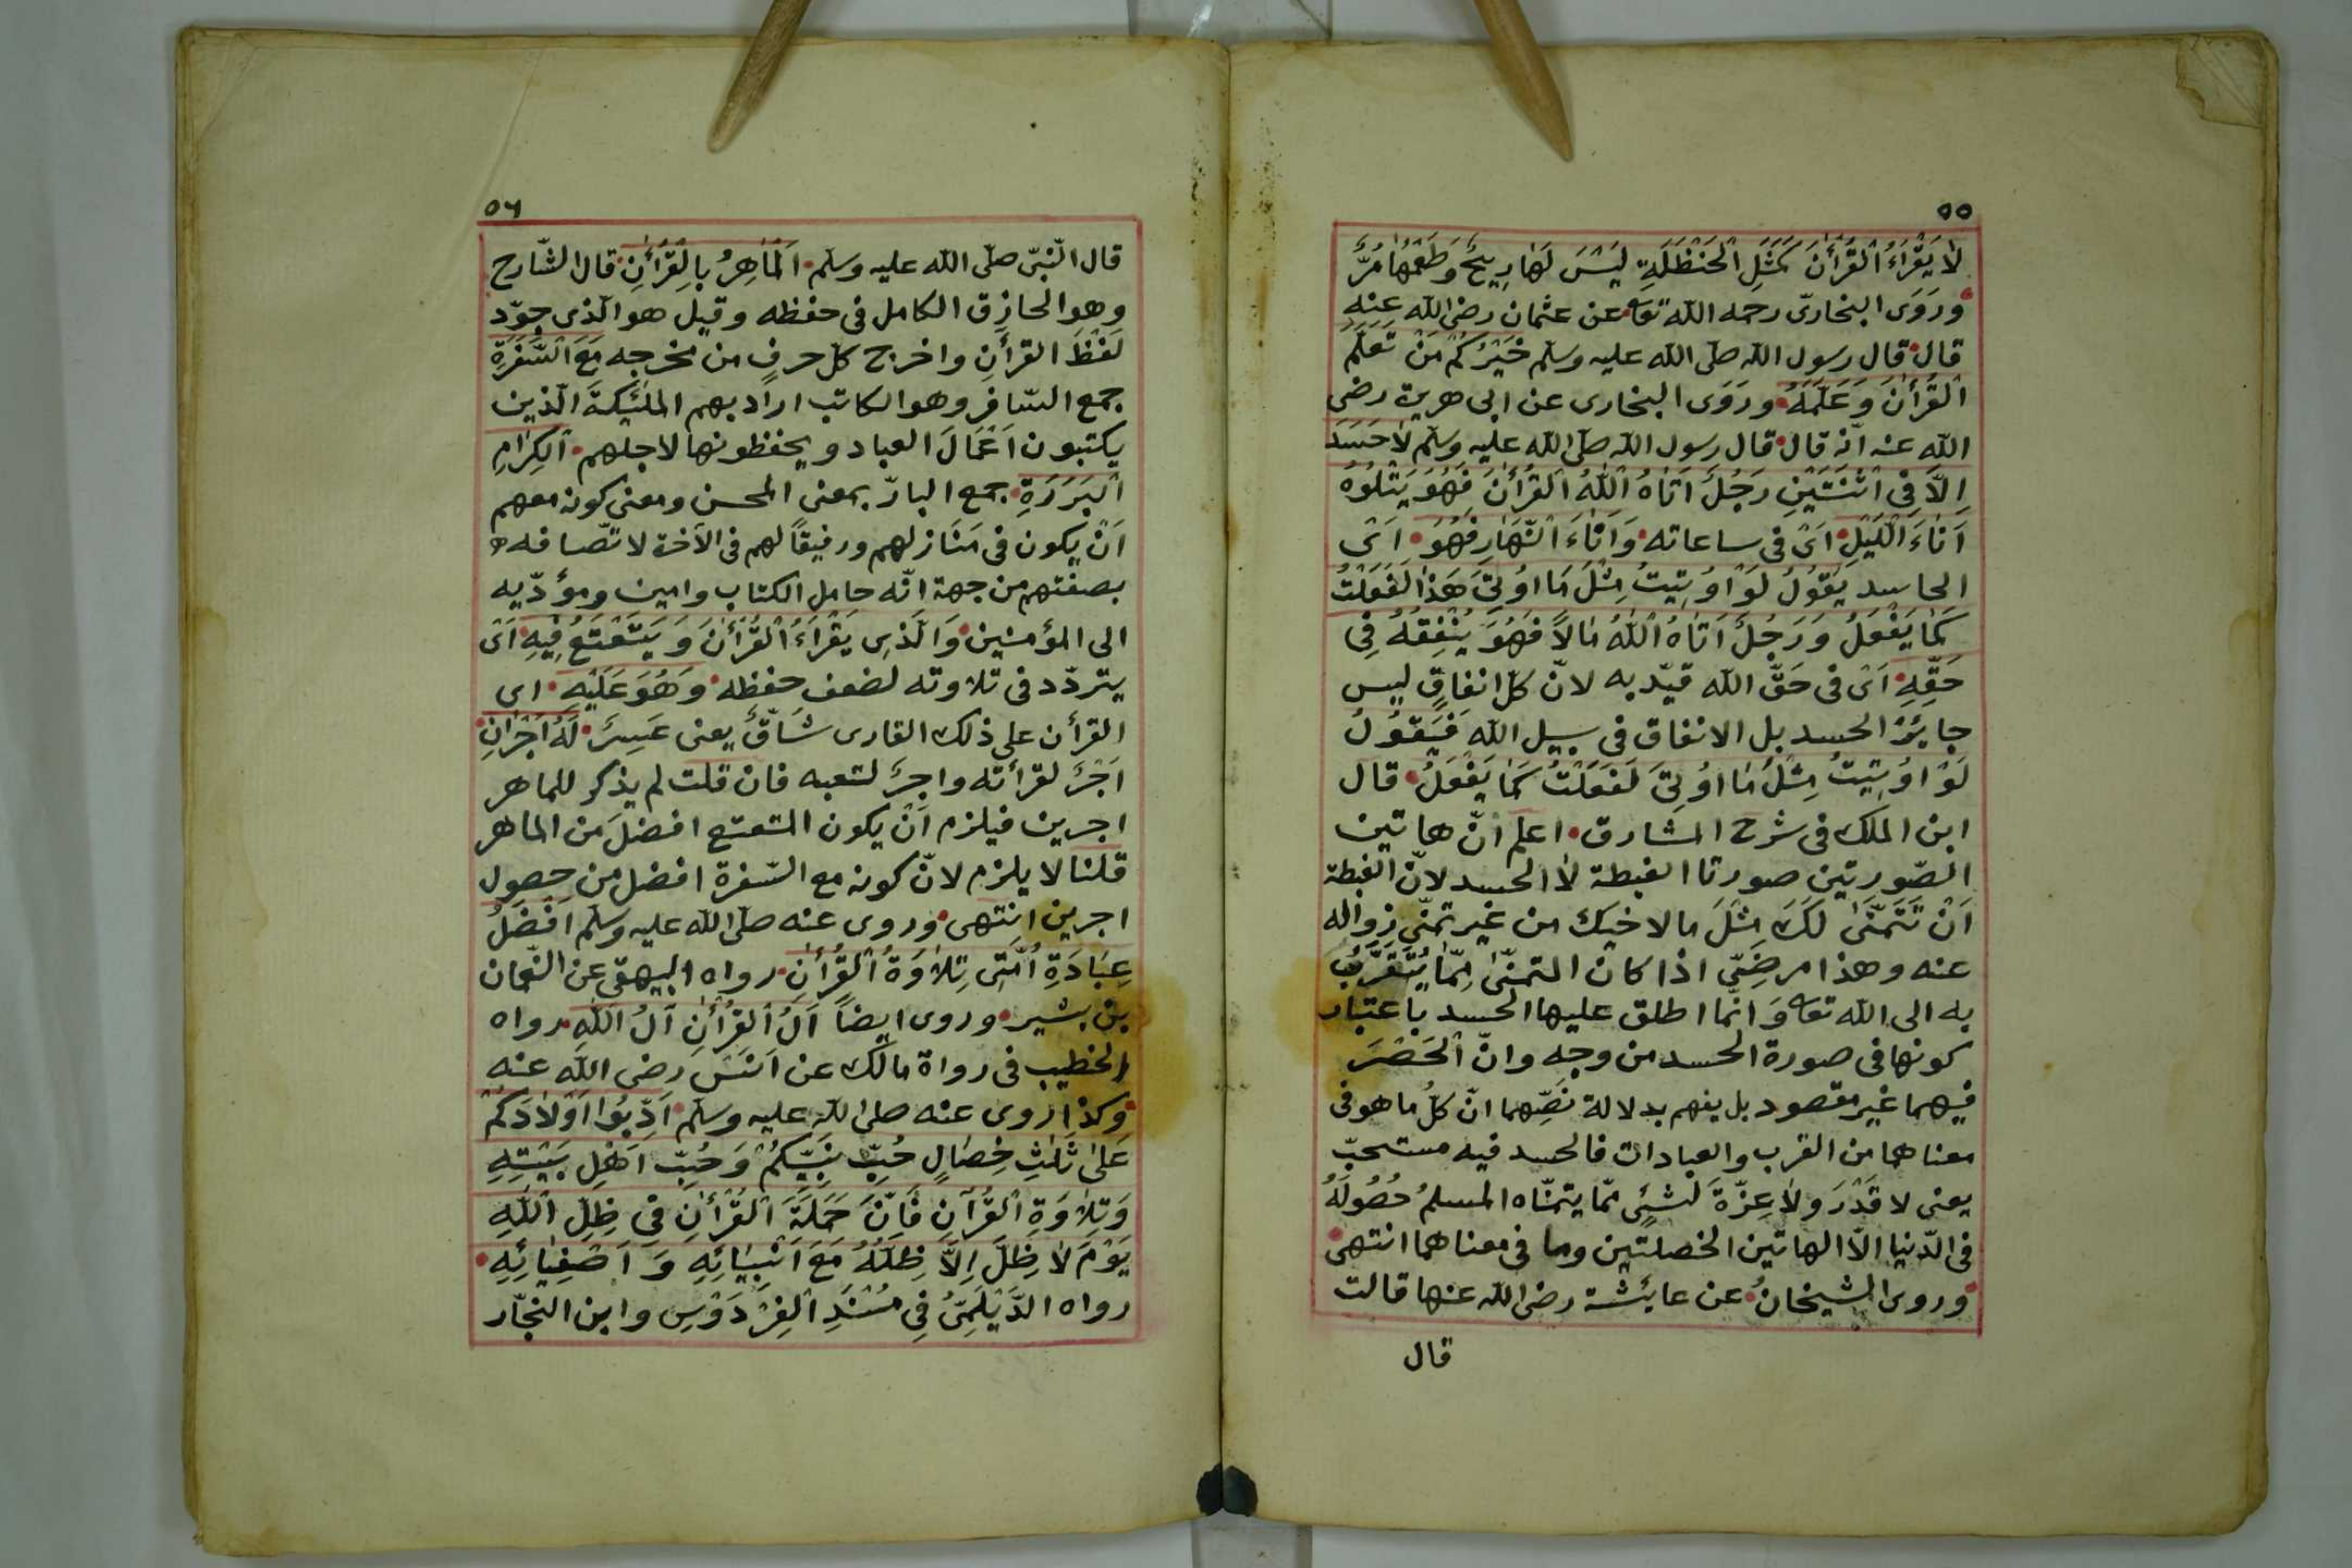 ٥٥
لَا يَقْرَاءُ الْقُرْأٰنَ كَمَثَلِ الْحَنْظَلَةِ لَيْسَ لَهَا رِيحٌ وَطَعْمُهَا مُرٌّ
وَرَوَى البخارىّ رحمه الله تعا عن عثمان رضى الله عنه
قال قال رسول الله صلى الله عليه وسلم خَيْرُكُمْ مَنْ تَعَلَّمَ
الْقُرْأٰنَ وَعَلَّمَهُ وَرَوَى البخارى عن ابى هريرة رضى
الله عنه انّه قال قال رسول الله صلى الله عليه وسلم لَا حَسَدَ
اِلَّا فِى اثْنَتَيْنِ رَجُلٌ اَتَاهُ اللّٰهُ الْقُرْأٰنَ فَهُوَ يَتْلُوهُ
اَنَاءَ اللَّيْلِ اَىْ فى ساعاته وَاَنَاءَ النَّهَارِ فَهُوَ اَىْ
الحاسد يَقُولُ لَوْ اُوتِيتُ مِثْلَ مَا اُوتِىَ هَذَا لَفَعَلْتُ
كَمَا يَفْعَلُ وَرَجُلٌ اَتَاهُ اللّٰهُ مَالاً فَهُوَ يُنْفِقُهُ فِى
حَقِّهِ اَىْ فى حَقِّ الله قيّد به لانّ كلّ انفاقٍ ليس
جايزُ الحسد بل الانفاق فى سبيل الله فَيَقُولُ
لَوْ اُوتِيتُ مِثْلَ مَا اُوتِىَ لَفَعَلْتُ كَمَا يَفْعَلُ قال
ابن الملك فى شرح المشارق اعلم انّ هاتين
الصّورتين صورتا الغبطة لا الحسد لانّ الغبطة
اَنْ تَتَمَنّٰى لَكَ مِثْلَ ما لاخيك من غير تمنّى زواله
عنه وهذا مرضىّ اذا كان التمنّى مِمّا يُتَقَرَّبُ
به الى الله تعا وَانّما اطلق عليها الحسد باعتبار
كونها فى صورة الحسد من وجه وانّ الْحَصْرَ
فيهما غير مقصود بل يفهم بدلالة نصّهما انّ كلّ ما هو فى
معناهما من القرب والعبادات فالحسد فيه مستحبّ
يعنى لا قَدْرَ ولا عِزّةَ لشئٍ ممّا يتمنّاه المسلمُ حُصُولَهُ
فى الدّنيا الّا لهاتين الخصلتين وما فى معناهما انتهى
وروى الشيخان عن عايشة رضى الله عنها قالت
قال
٥٦
قال النّبىّ صلى الله عليه وسلم اَلْمَاهِرُ بِالْقُرْأٰنِ قال الشّارح
وهو الحازق الكامل فى حفظه وقيل هو الّذى جوّد
لَفْظَ القرأنِ واخرج كلّ حرفٍ من مخرجه مَعَ السَّفَرَةِ
جمع السّافر وهو الكاتب اراد بهم الملٰئِكةَ الّذين
يكتبون اَعْمَالَ العباد ويحفظونها لاجلهم اَلْكِرَامِ
الْبَرَرَةِ جمع البارّ بمعنى المحسن ومعنى كونه معهم
اَنْ يكون فى مَنَازلهم ورفيقاً لهم فى الآخرة لاتّصافه
بصفتهم من جهة انّه حامل الكتاب وامين ومؤدّيه
الى المؤمنين وَالّذِى يَقْرَاءُ الْقُرْأٰنَ وَيَتَعْتَعُ فِيهِ اَىْ
يتردّد فى تلاوته لضعف حفظه وَهُوَ عَلَيْهِ اى
القرأن على ذلك القارى شَاقٌّ يعنى عَسِرٌ لَهُ اَجْرَانِ
اَجْرٌ لقرأته واجرٌ لتعبه فان قلت لم يذكر للماهر
اجرين فيلزم اَنْ يكون المتعتع افضلَ من الماهر
قلنا لا يلزم لانّ كونه مع السّفرة افضل من حصول
اجرين انتهى وروى عنه صلى الله عليه وسلم اَفْضَلُ
عِبَادَةِ اُمَّتِى تِلَاوَةُ الْقُرْأٰنِ رواه البيهقى عن النّعمان
بن بشير وروى ايضاً اٰلُ الْقُرْأٰنِ اٰلُ اللّٰهِ رواه
الخطيب فى رواة مالك عن اَنَسٍ رضى الله عنه
وكذا روى عنه صلى الله عليه وسلم اَدِّبُوا اَوْلَادَكُمْ
عَلٰى ثَلٰثِ خِصَالٍ حُبِّ نَبِيِّكُمْ وَحُبِّ اَهْلِ بَيْتِهِ
وَتِلَاوَةِ الْقُرْآنِ فَاِنَّ حَمَلَةَ الْقُرْأٰنِ فِى ظِلِّ اللّٰهِ
يَوْمَ لَا ظِلَّ اِلَّا ظِلُّهُ مَعَ اَنْبِيَائِهِ وَاَصْفِيَائِهِ
رواه الدَّيْلَمِىُّ فِى مُسْنَدِ الْفِرْدَوْسِ وابن النجّار